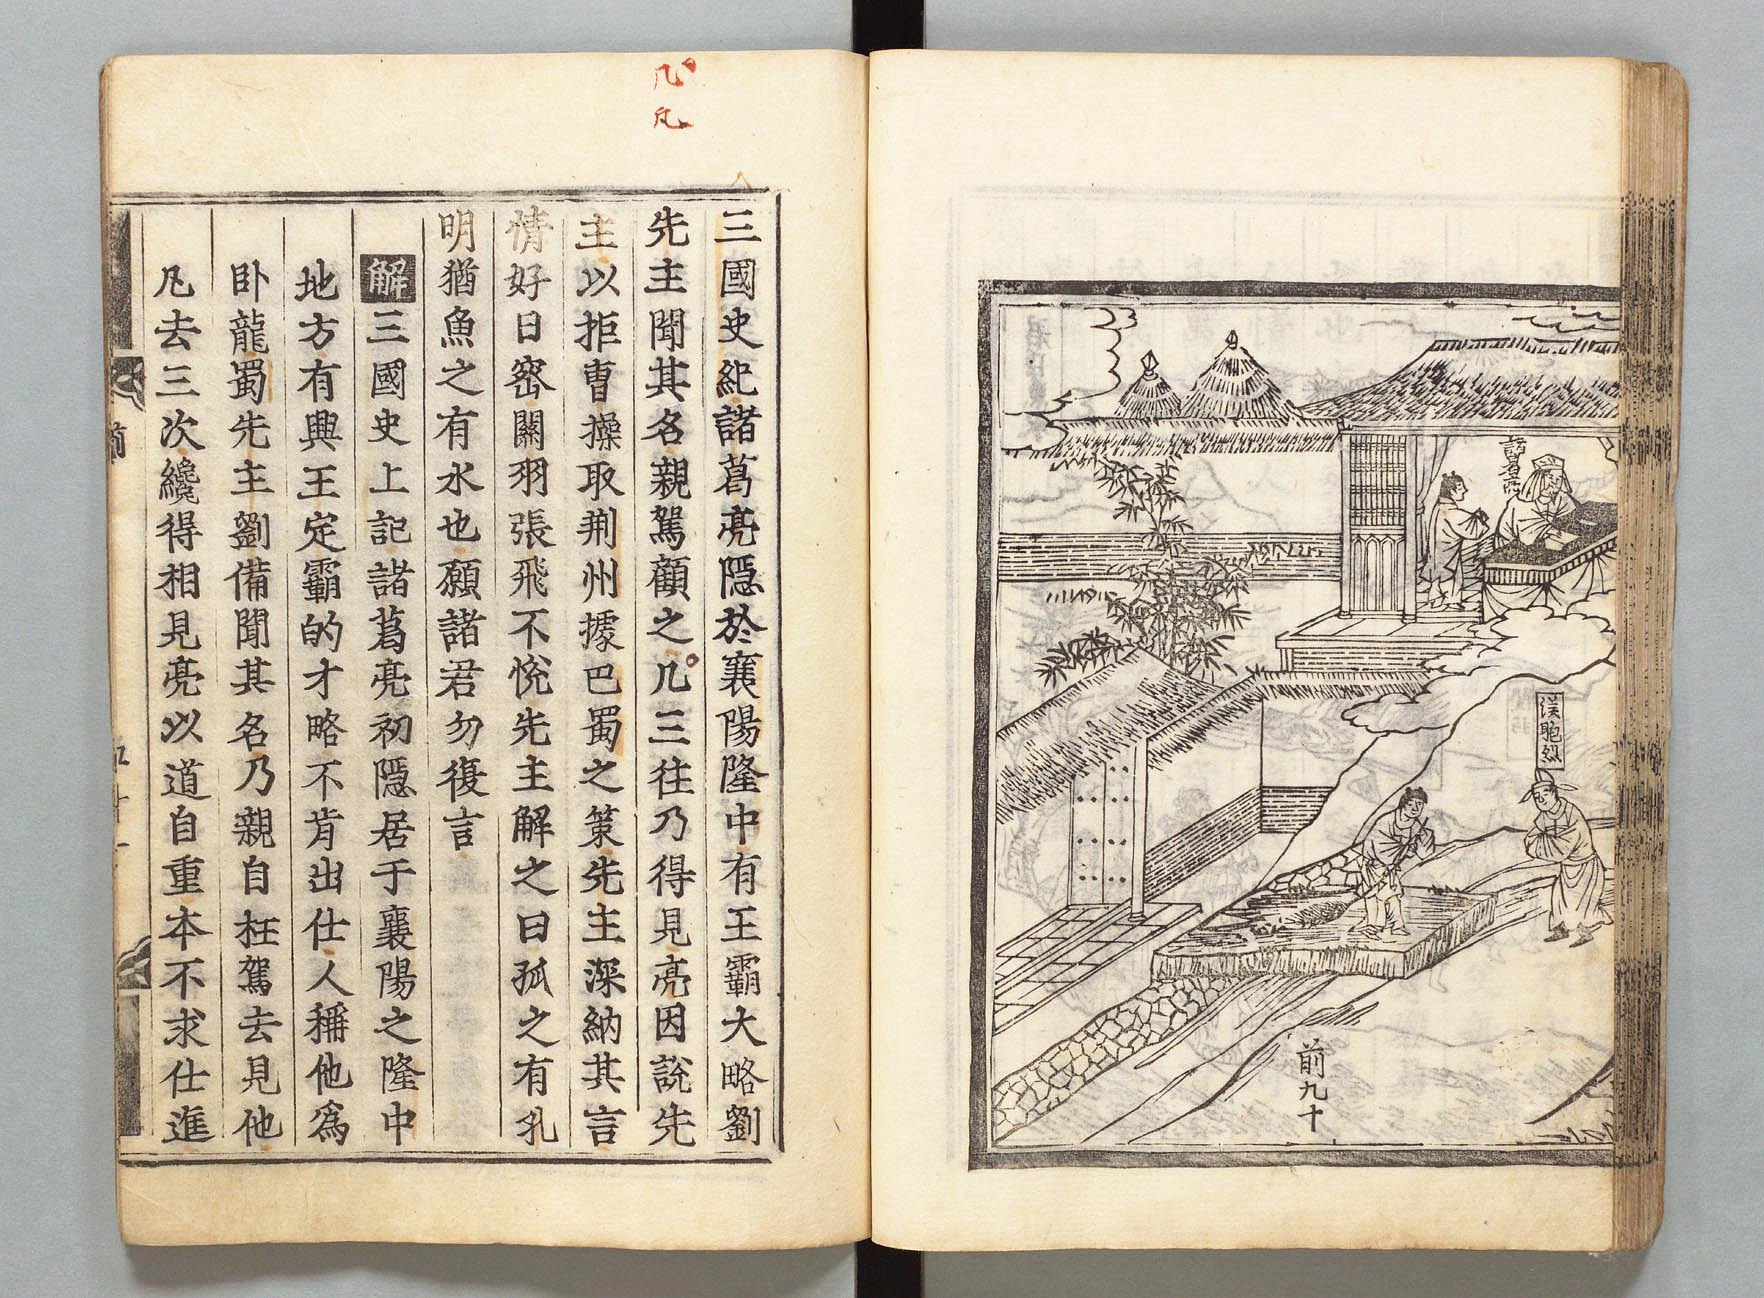 諸葛亮
漢昭烈
前九十
凡
凡
三國史紀諸葛亮隱於襄陽隆中有王霸大略劉
先主聞其名親駕顧之凡三往乃得見亮因說先
主以拒曹操取荆州據巴蜀之策先主深納其言
情好日密關羽張飛不悅先主解之曰孤之有孔
明猶魚之有水也願諸君勿復言
解三國史上記諸葛亮初隱居于襄陽之隆中
地方有興王定霸的才略不肯出仕人稱他爲
卧龍蜀先主劉備聞其名乃親自枉駕去見他
凡去三次纔得相見亮以道自重本不求仕進
前